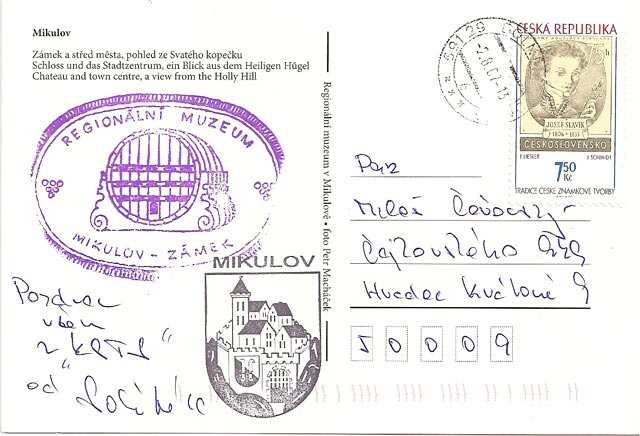 Mikulov
Zámek a střed města, pohled ze Svatého kopečku
Schloss und das Stadtzentrum, ein Blick aus dem Heiligen Hügel
Chateau and town centre, a view from the Holly Hill
REGIONÁLNÍ MUZEUM
MIKULOV - ZÁMEK
MIKULOV
Regionální muzeum v Mikulově • foto Petr Macháček
69129
ČESKÁ REPUBLIKA
h
JOSEF SLAVÍK
1806 1833
ČESKOSLOVENSKO
J. SCHMIDT
7,50
Kč
TRADICE ČESKÉ ZNÁMKOVÉ TVORBY
Pan
Miloš
Čajkovského
Hradec Králové 9
5 0 0 0 9
Pozdrav
od